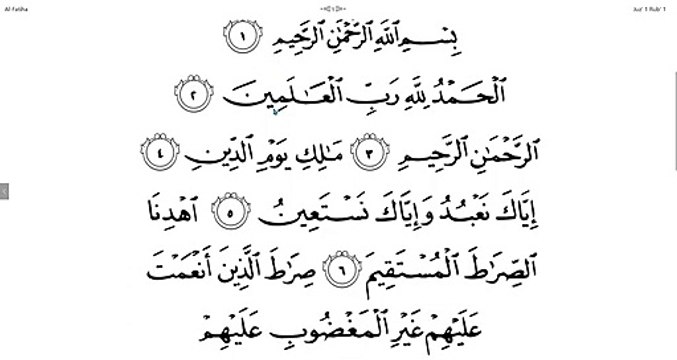 Al-Fatiha
1
Juz' 1 Rub' 1
بِسْمِ اللَّهِ الرَّحْمَٰنِ الرَّحِيمِ ١
الْحَمْدُ لِلَّهِ رَبِّ الْعَالَمِينَ ٢
الرَّحْمَٰنِ الرَّحِيمِ ٣ مَالِكِ يَوْمِ الدِّينِ ٤
إِيَّاكَ نَعْبُدُ وَإِيَّاكَ نَسْتَعِينُ ٥ اهْدِنَا
الصِّرَاطَ الْمُسْتَقِيمَ ٦ صِرَاطَ الَّذِينَ أَنْعَمْتَ
عَلَيْهِمْ غَيْرِ الْمَغْضُوبِ عَلَيْهِمْ